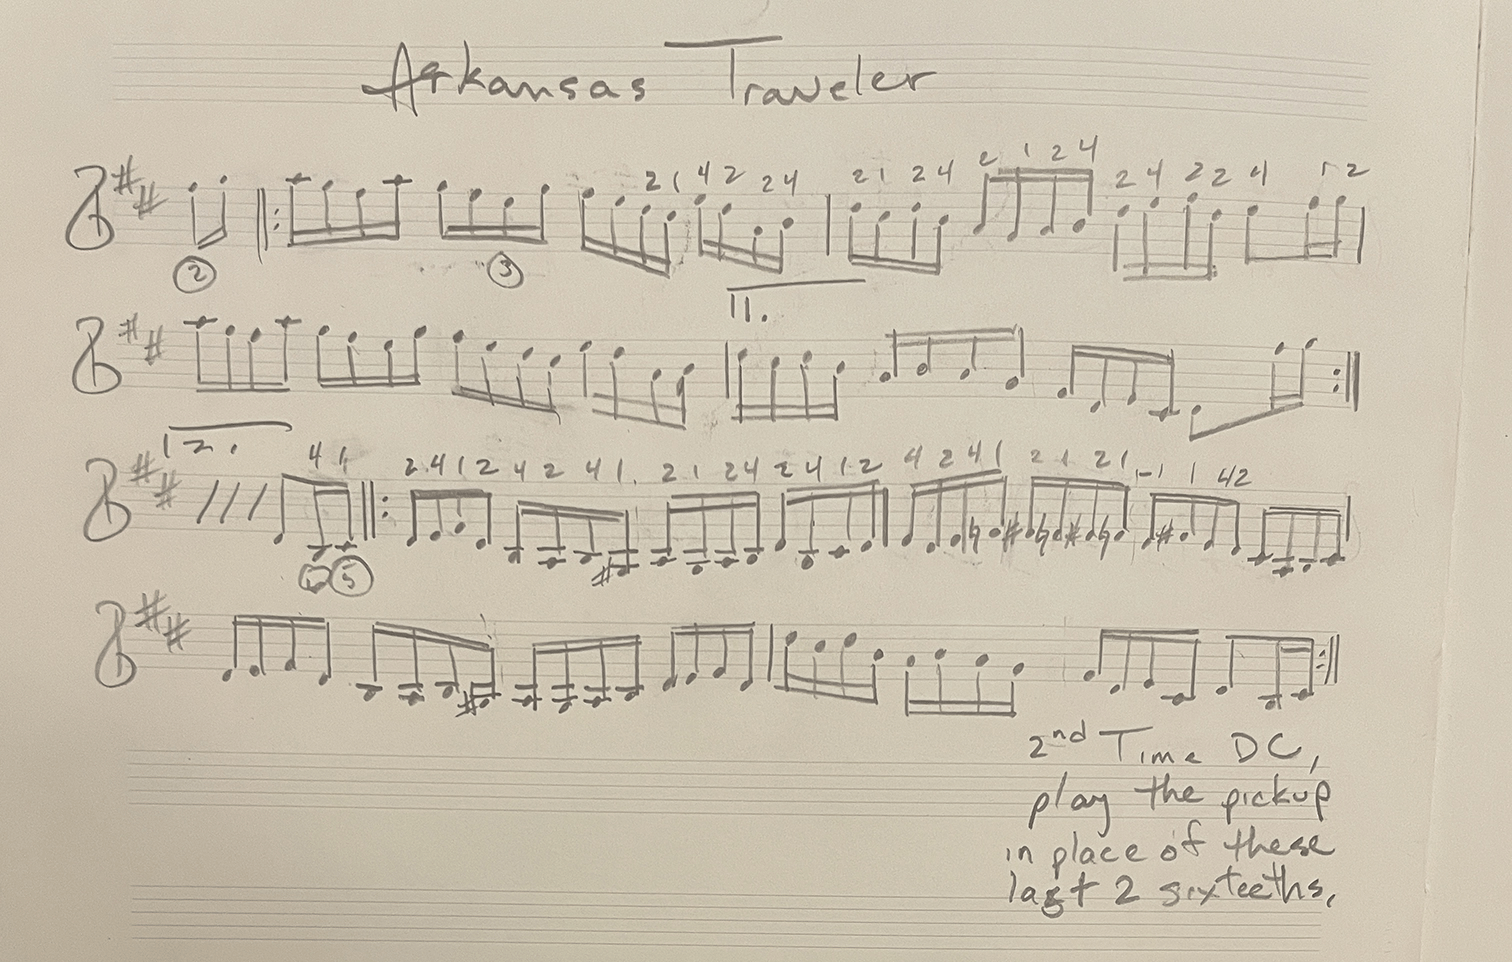 Arkansas Traveler
2 1 4 2 2 4 2 1 2 4 2 1 2 4 2 4 2 2 4 1 2
② ③
1.
2. 4 1 2 4 1 2 4 2 4 1 2 1 2 4 2 4 1 2 4 2 4 1 2 1 2 1 -1 1 4 2
⑤
2nd Time DC,
play the pickup
in place of these
last 2 sixteeths.